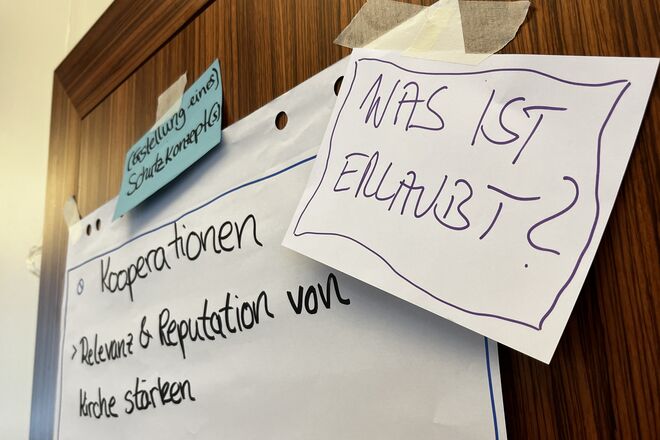 (Erstellung eines)
Schutzkonzept(s)
WAS IST
ERLAUBT?
Kooperationen
> Relevanz & Reputation von
Kirche stärken